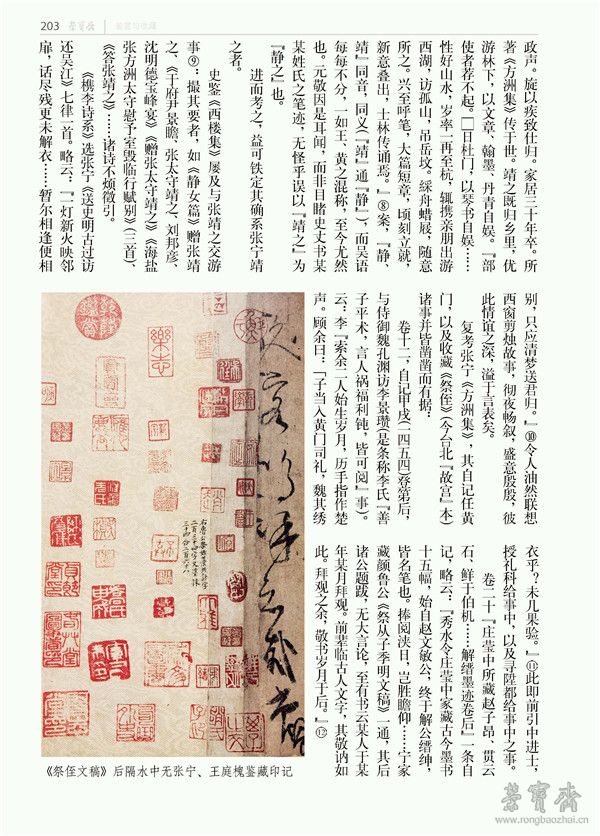 203 荣宝斋 鉴赏与收藏
政声。旋以疾致仕归。家居三十年卒。所
著《方洲集》传于世。靖之既归乡里，优
游林下，以文章、翰墨、丹青自娱。『部
使者荐不起。□日杜门，以琴书自娱……
性好山水，岁率一再至杭，辄携亲朋出游
西湖，访孤山，吊岳坟。綵舟蜡屐，随意
所之。兴至呼笔，大篇短章，顷刻立就，
新意叠出，士林传诵焉。』⑧案，『静、
靖』同音，同义（『靖』通『静』），而吴语
每每不分，一如王、黄之混称，至今尤然
也。元敬因是耳闻，而非目睹史丈书某
某姓氏之笔迹，无怪乎误以『靖之』为
『静之』也。
进而考之，益可铁定其确系张宁靖
之者。
史鉴《西楼集》屡及与张靖之交游
事⑨：撮其要者，如《静女篇》赠张靖
之、《于府尹景瞻、张太守靖之、刘邦彦、
沈明德宝峰宴》《赠张太守靖之》《海盐
张方洲太守慰予室毁临行赋别》（三首）、
《答张靖之》……诸诗不烦徵引。
《檇李诗系》选张宁《送史明古过访
还吴江》七律一首。略云：『一灯新火映邻
扉，话尽残更未解衣……暂尔相逢便相
别，只应清梦送君归。』⑩令人油然联想
西窗剪烛故事，彻夜畅叙，盛意殷殷，彼
此情谊之深，溢于言表矣。
复考张宁《方洲集》，其自记任黄
门，以及收藏《祭侄》（今台北『故宫』本）
诸事并皆凿凿而有据：
卷十二，自记甲戌（一四五四）登第后，
与侍御魏孔渊访李景瓒（是条称李氏『善
子平术，言人祸福利钝，皆可阅』事）。
云：李『索余二人始生岁月，历手指作楚
声。顾余曰：「子当入黄门司礼，魏其绣
衣乎？未几果验。』⑪此即前引中进士，
授礼科给事中，以及寻陞都给事中之事。
卷二十『庄莹中所藏赵子昂、贯云
石、鲜于伯机……解缙墨迹卷后』一条自
记，略云：『秀水令庄莹中家藏古今墨书
十五幅，始自赵文敏公，终于解公缙绅，
皆名笔也。捧阅浃日，岂胜瞻仰……宁家
藏颜鲁公《祭从子季明文稿》一通，其后
诸公题跋，无大言论，至有书云某人于某
年某月拜观。前辈临古人文字，其敬讷如
此。拜观之余，敬书岁月于后。』⑫
《祭侄文稿》后隔水中无张宁、王庭槐鉴藏印记
荣宝斋
www.rongbaozhai.cn